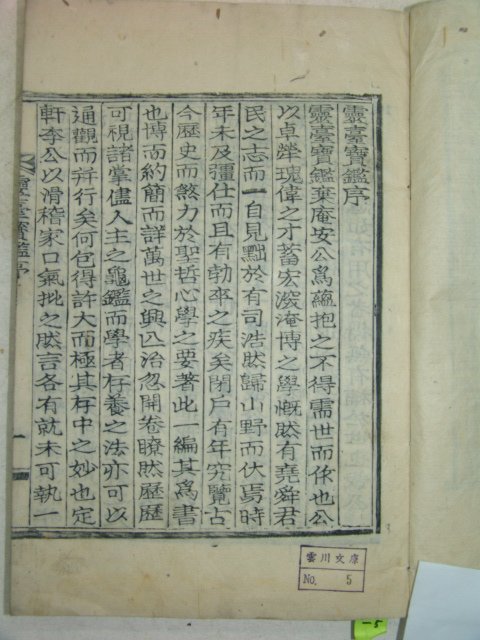 靈臺寶鑑序
靈臺寶鑑棄庵安公爲蘊抱之不得需世而作也公
以卓犖瑰偉之才蓄宏深淹博之學慨然有堯舜君
民之志而一自見黜於有司浩然歸山野而伏焉時
年未及彊仕而且有勃窣之疾矣閉戶有年究覽古
今歷史而煞力於聖哲心學之要著此一編其爲書
也博而約簡而詳萬世之興亡治忽開卷瞭然歷歷
可視諸掌儘人主之龜鑑而學者存養之法亦可以
通觀而幷行矣何包得許大而極其存中之妙也定
軒李公以滑稽家口氣批之然言各有就未可執一
靈臺寶鑑序
一
雲川文庫
No. 5
-5